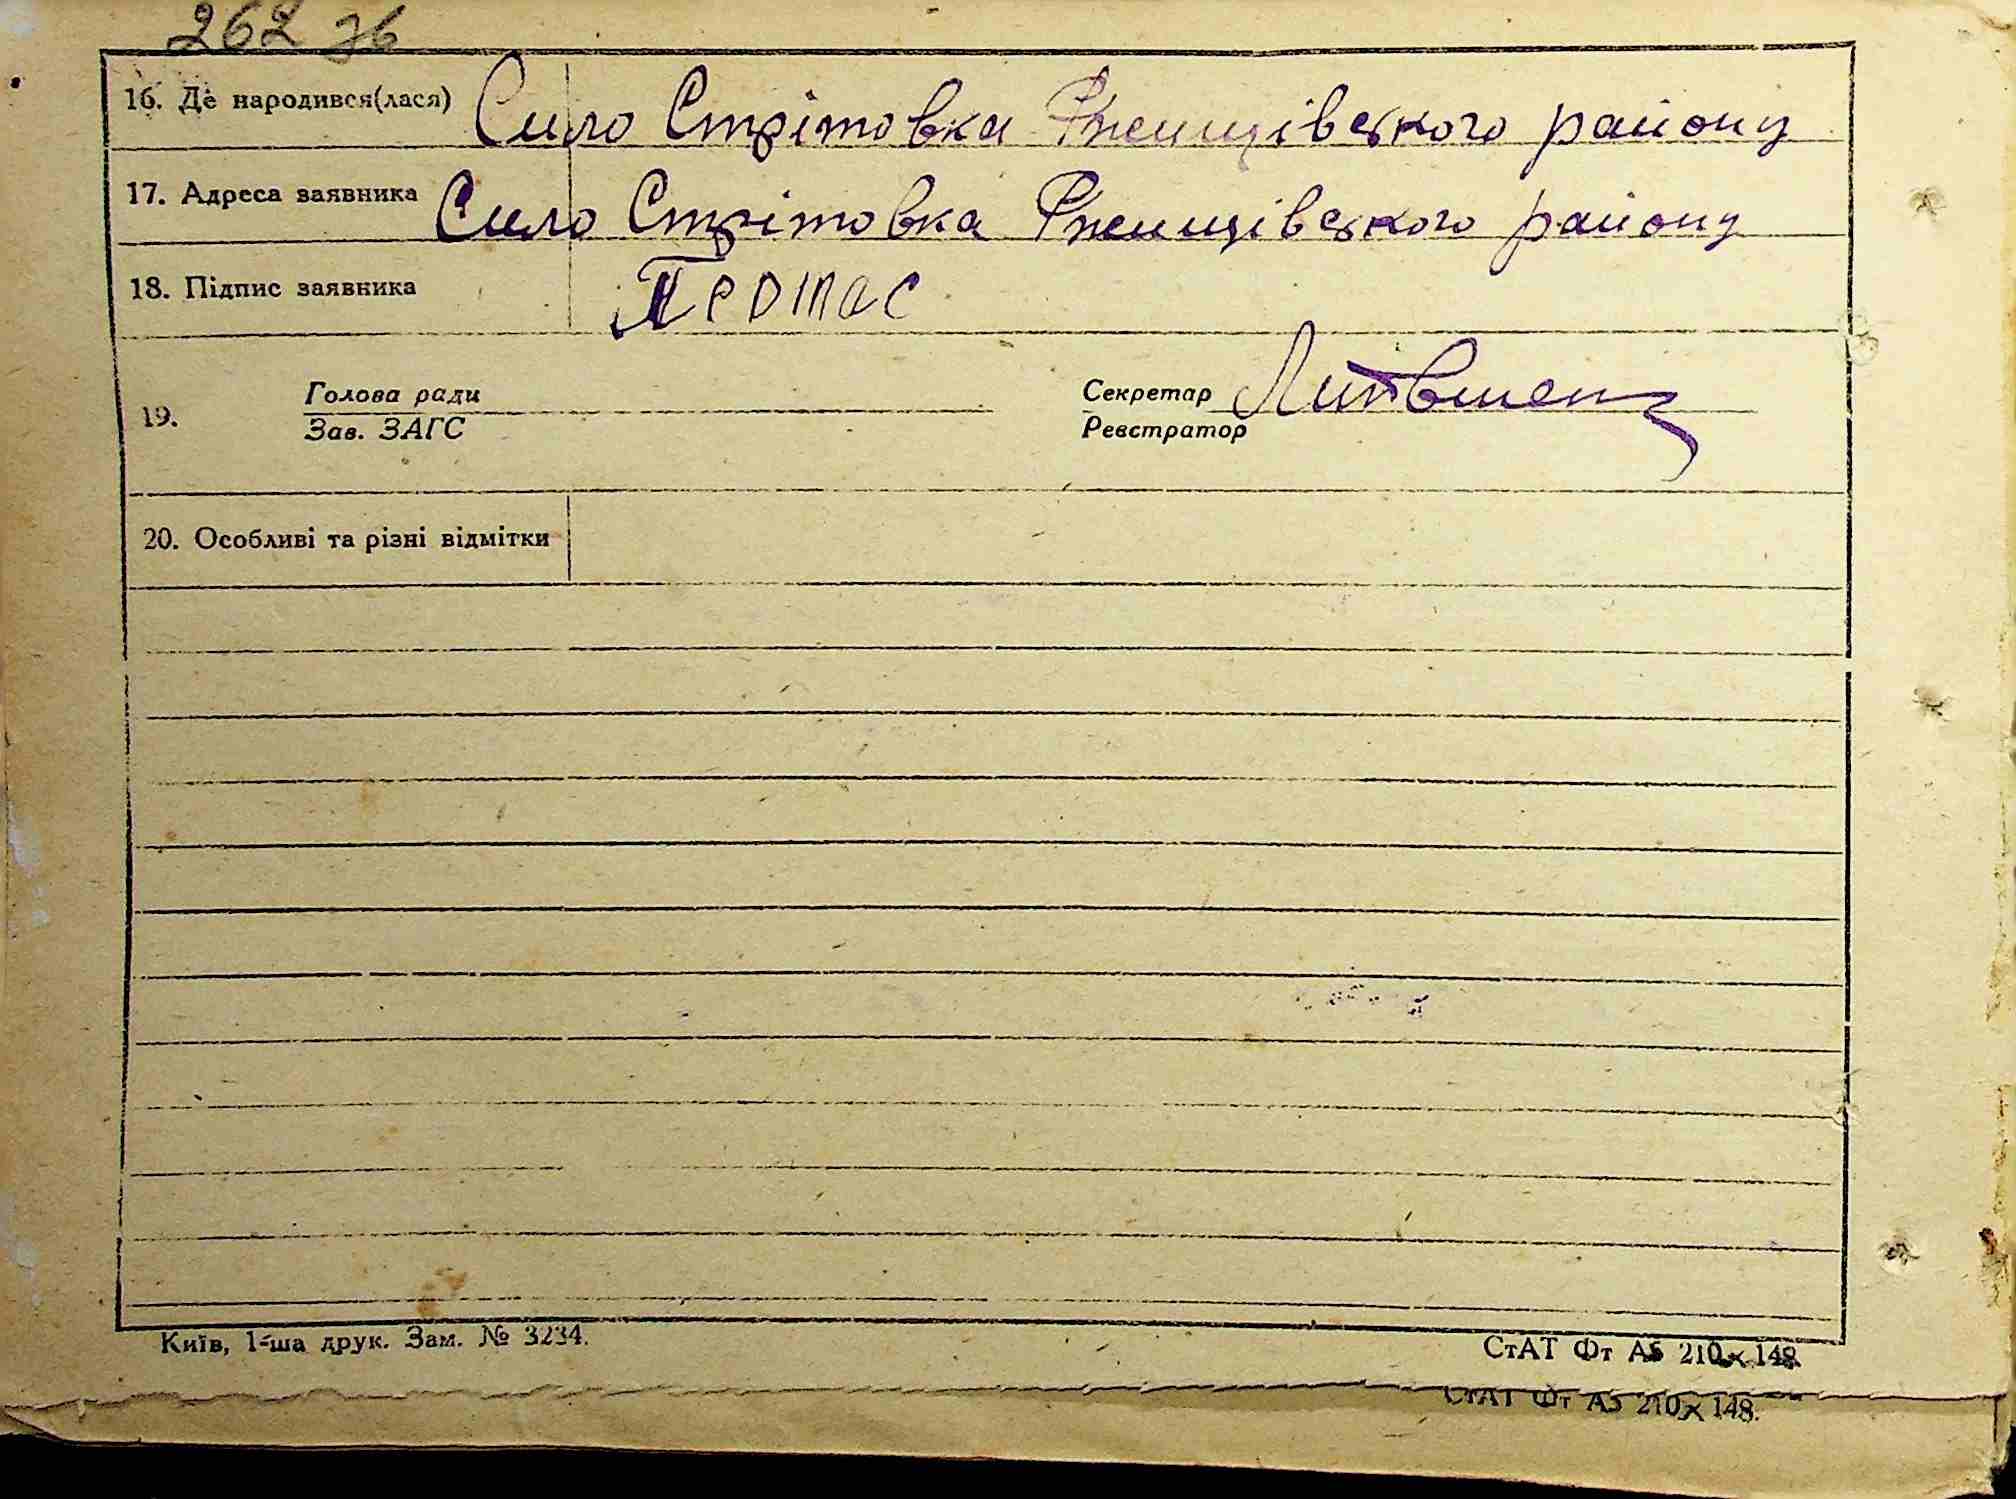 262 зв
16. Де народився(лася) Село Стрітовка Ржищівського району
17. Адреса заявника Село Стрітовка Ржищівського району
18. Підпис заявника Протас
19. Голова ради Секретар
Зав. ЗАГС Реєстратор
20. Особливі та різні відмітки
Київ, 1-ша друк. Зам. № 3234. СтАТ Фт А5 210×148.
СтАТ Фт А5 210×148.